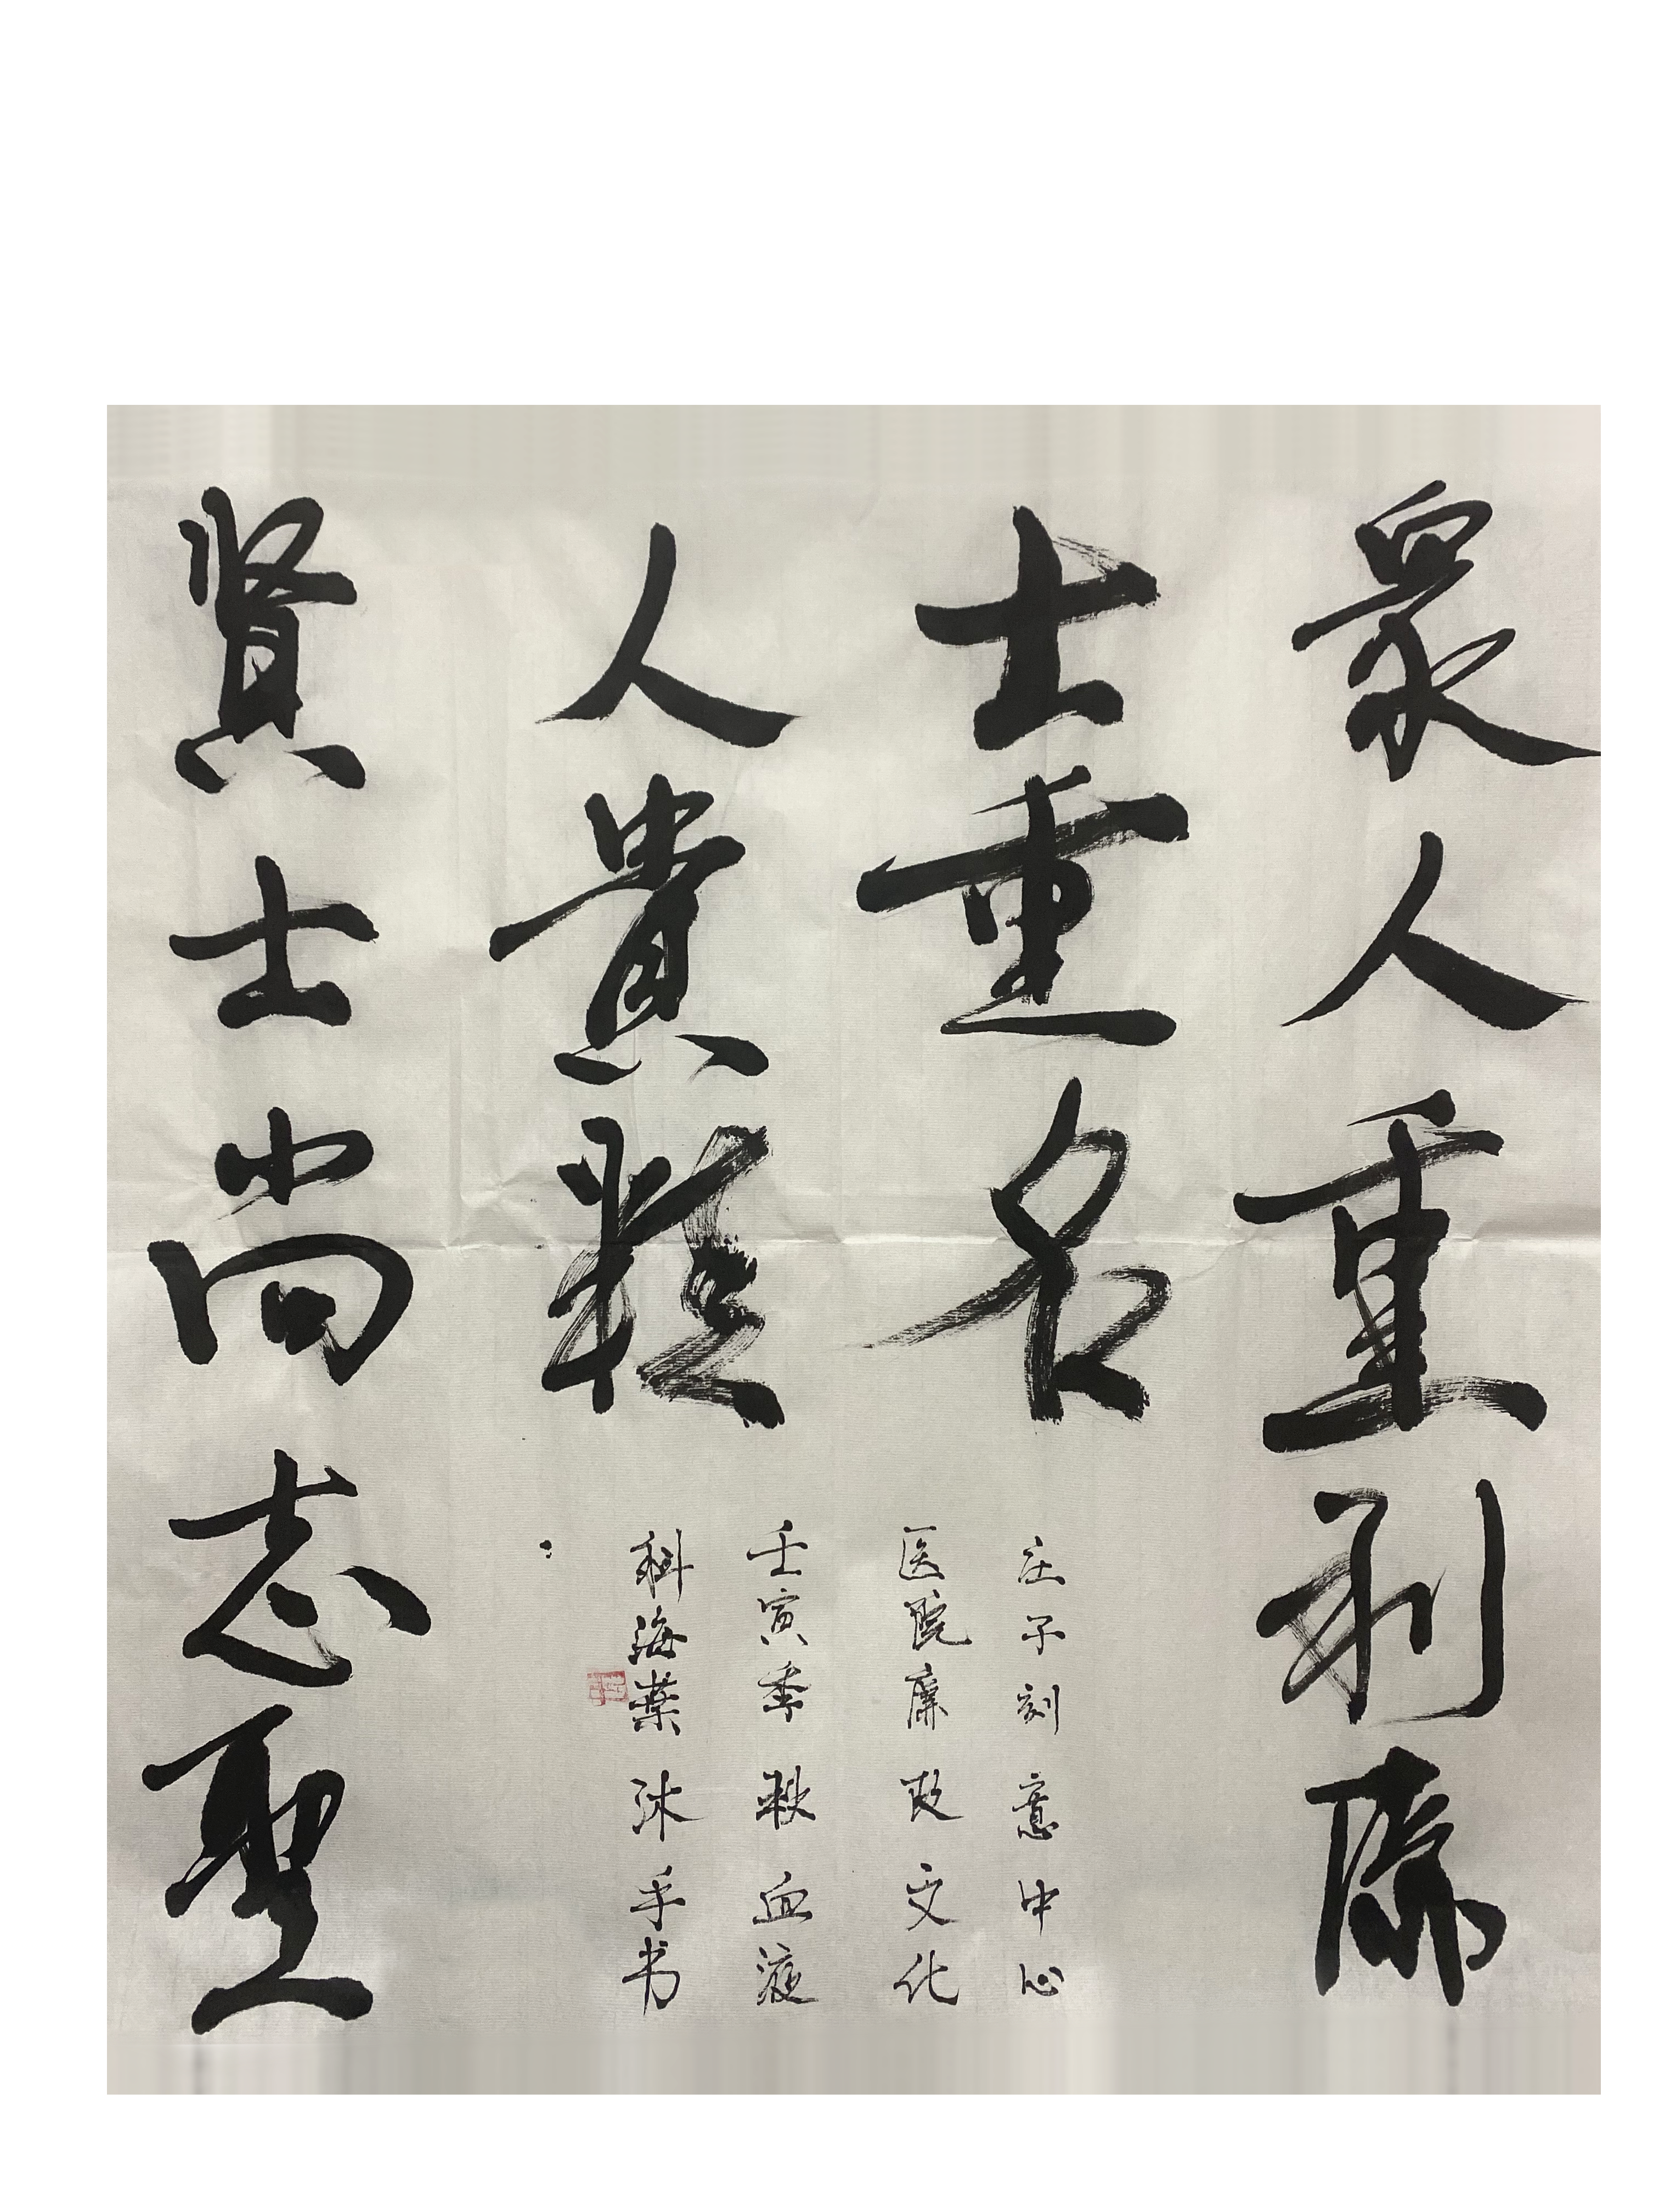 衆人重利廉
士重名
人貴精
贤士尚志聖
庄子刻意中心
医院廉政文化
壬寅季秋血液
科海葉沐手书